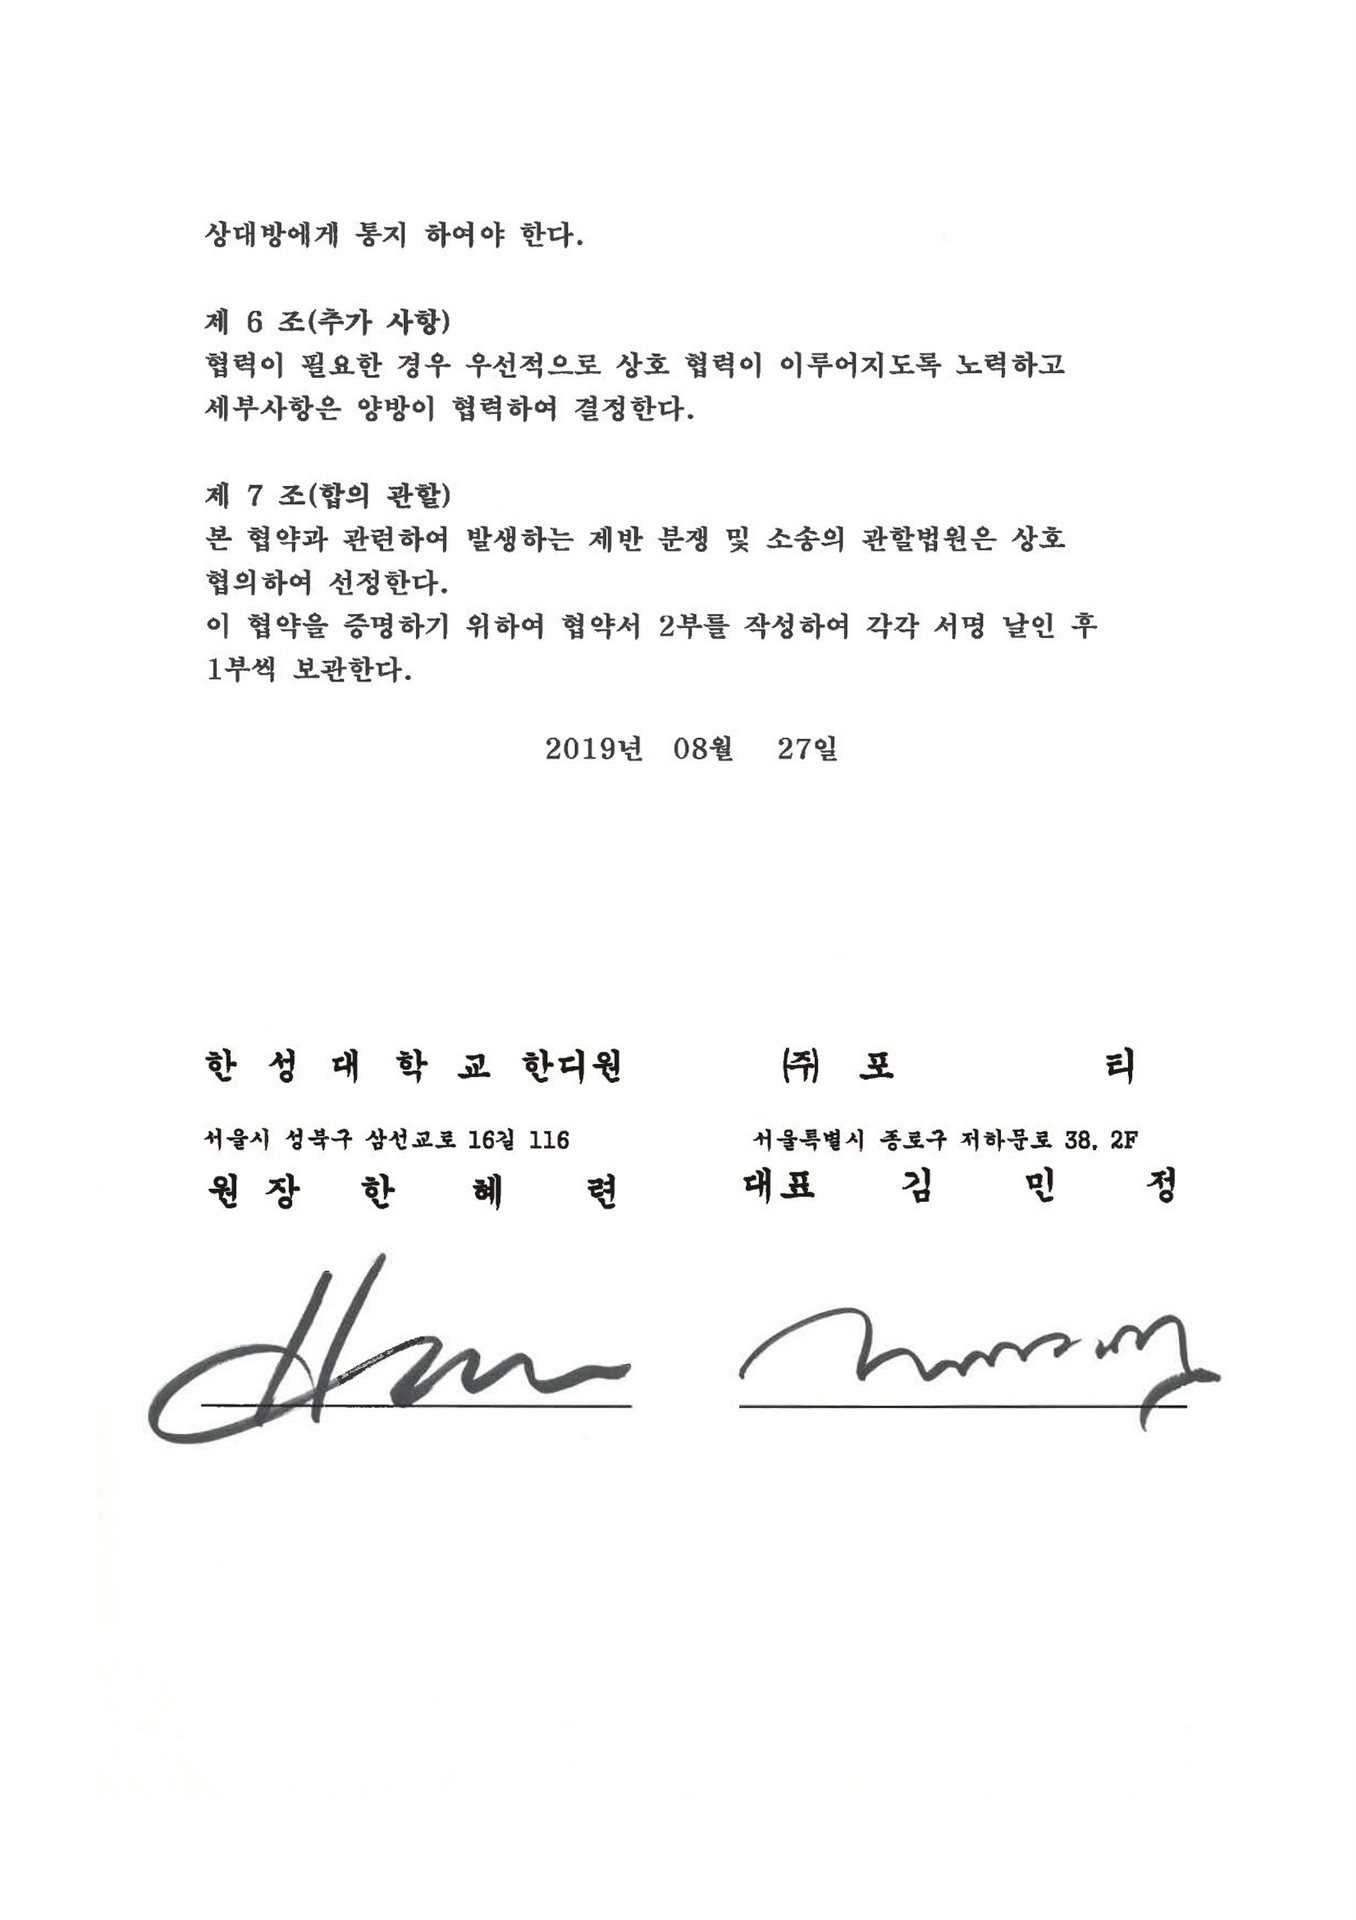 상대방에게 통지 하여야 한다.
제 6 조(추가 사항)
협력이 필요한 경우 우선적으로 상호 협력이 이루어지도록 노력하고
세부사항은 양방이 협력하여 결정한다.
제 7 조(합의 관할)
본 협약과 관련하여 발생하는 제반 분쟁 및 소송의 관할법원은 상호
협의하여 선정한다.
이 협약을 증명하기 위하여 협약서 2부를 작성하여 각각 서명 날인 후
1부씩 보관한다.
2019년 08월 27일
한 성 대 학 교 한디원 (주) 포 티
서울시 성북구 삼선교로 16길 116 서울특별시 종로구 저하문로 38, 2F
원 장 한 혜 련 대표 김 민 정